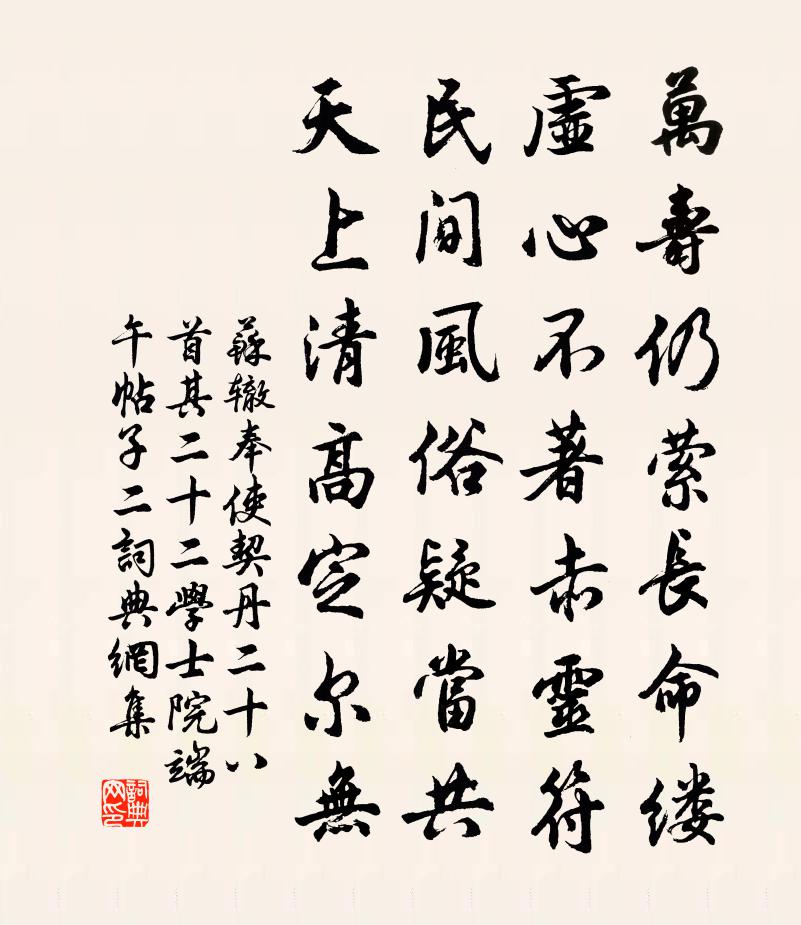 萬壽仍縈長命缕
虛心不著赤靈符
民间風俗疑當共
天上清高定尔無
蘇辙奉使契丹二十八
首其二十二學士院端
午帖子二詞典網集
詞典网印